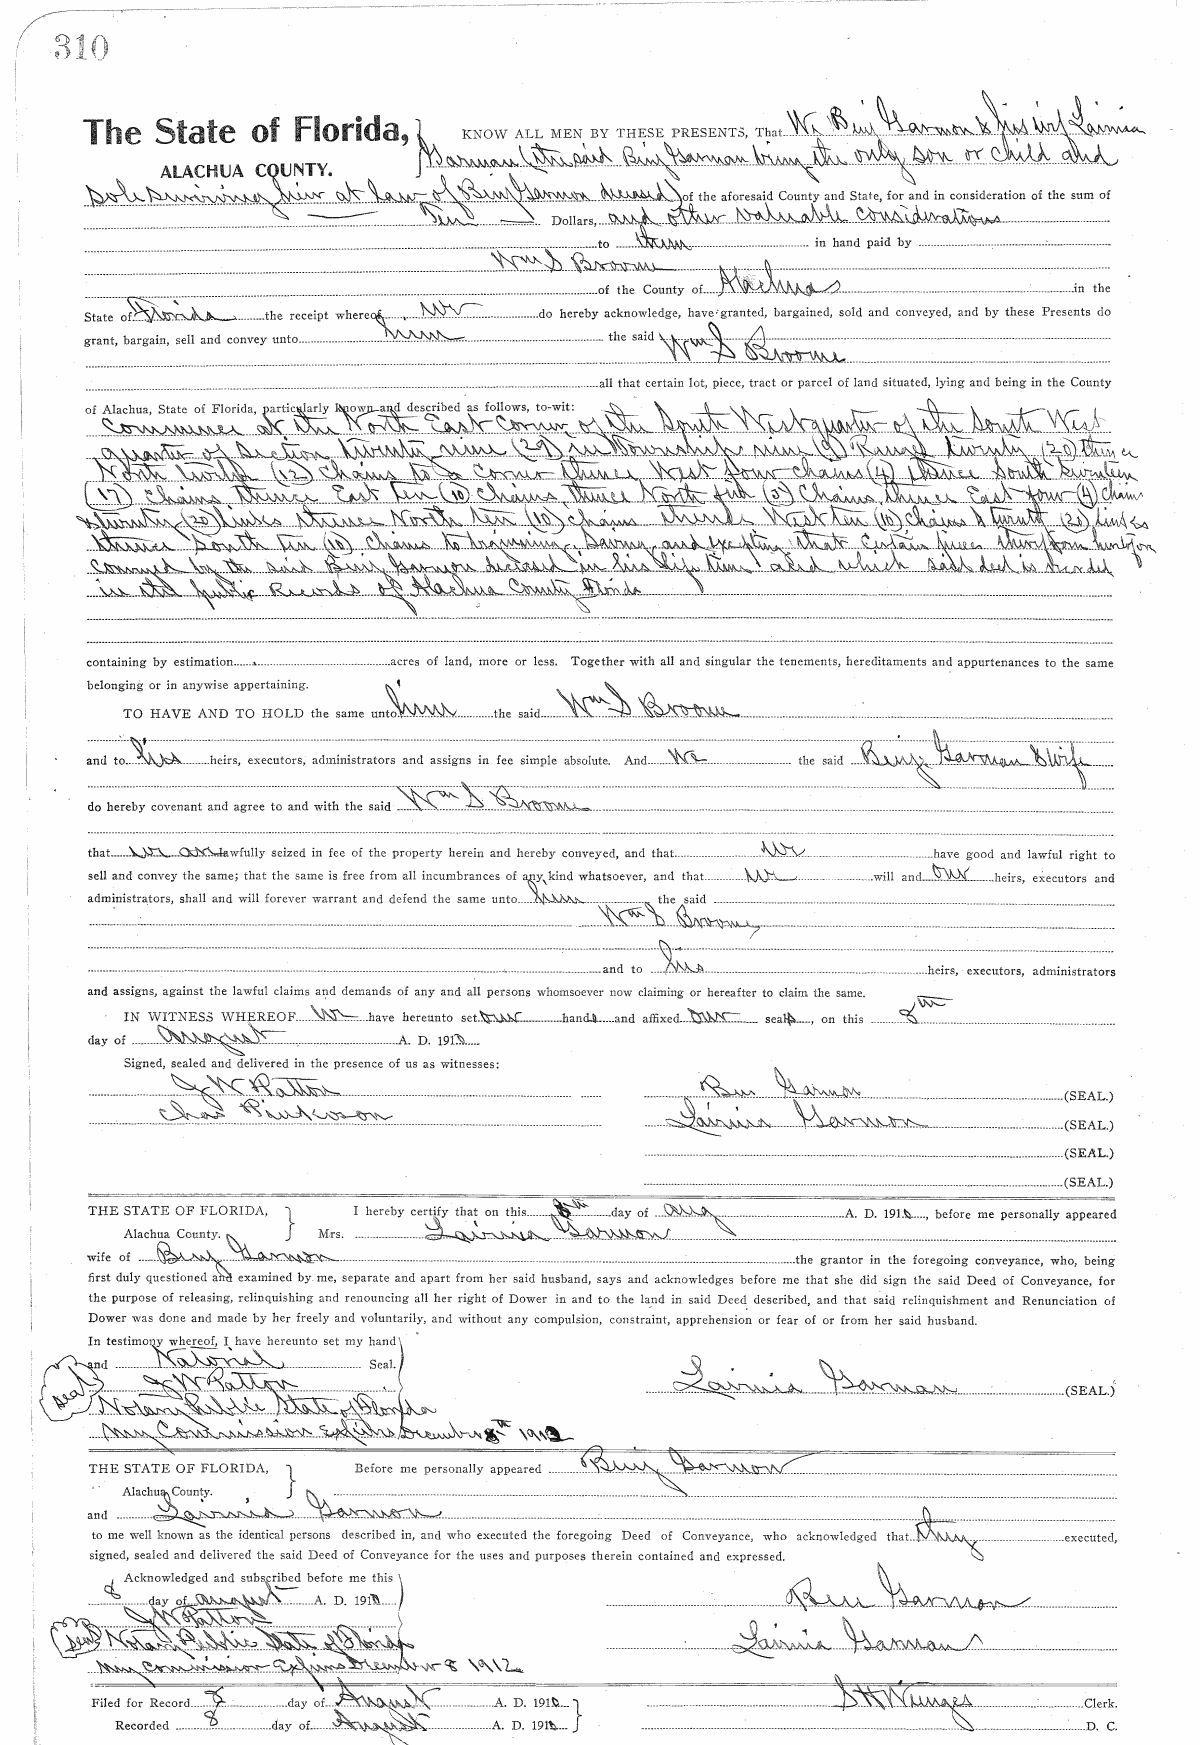 310
The State of Florida, KNOW ALL MEN BY THESE PRESENTS, That We Binj Garmon & his wife Lairnia
ALACHUA COUNTY. Garman (the said Binj Garman being the only son or child and
sole surviving heir at Law of Binj Garmon deceased) of the aforesaid County and State, for and in consideration of the sum of
Ten Dollars, and other valuable considerations
to them in hand paid by
Wm S Broome
of the County of Alachua in the
State of Florida the receipt whereof we do hereby acknowledge, have granted, bargained, sold and conveyed, and by these Presents do
grant, bargain, sell and convey unto him the said Wm S Broome
all that certain lot, piece, tract or parcel of land situated, lying and being in the County
of Alachua, State of Florida, particularly known and described as follows, to-wit:
Commence at the North East Corner of the South West quarter of the South West
quarter of Section twenty nine (29) in Township nine (9) Range twenty (20) thence
North twelve (12) Chains to a Corner thence West four chains (4) thence South seventeen
(17) Chains thence East Ten (10) Chains, thence North five (5) Chains, thence East four (4) chains
& twenty (20) links thence North ten (10) chains thence West ten (10) Chains & twenty (20) links
thence South ten (10) Chains to beginning. Saving and excepting that certain piece therefrom
conveyed by the said Binj Garmon deceased in his life time and which said deed is recorded
in the public Records of Alachua County Florida
containing by estimation acres of land, more or less. Together with all and singular the tenements, hereditaments and appurtenances to the same
belonging or in anywise appertaining.
TO HAVE AND TO HOLD the same unto him the said Wm S Broome
and to his heirs, executors, administrators and assigns in fee simple absolute. And we the said Binj. Garman & wife
do hereby covenant and agree to and with the said Wm S Broome
that we are lawfully seized in fee of the property herein and hereby conveyed, and that we have good and lawful right to
sell and convey the same; that the same is free from all incumbrances of any kind whatsoever, and that we will and our heirs, executors and
administrators, shall and will forever warrant and defend the same unto him the said
Wm S Broome
and to his heirs, executors, administrators
and assigns, against the lawful claims and demands of any and all persons whomsoever now claiming or hereafter to claim the same.
IN WITNESS WHEREOF We have hereunto set our hands and affixed our seals, on this 8th
day of August A. D. 1910
Signed, sealed and delivered in the presence of us as witnesses:
J W Patton Binj Garmon (SEAL.)
Chas Pinkoson Lairnia Garmon (SEAL.)
(SEAL.)
(SEAL.)
THE STATE OF FLORIDA, I hereby certify that on this 8th day of Aug A. D. 1910, before me personally appeared
Alachua County. Mrs. Lairnia Garmon
wife of Binj Garmon the grantor in the foregoing conveyance, who, being
first duly questioned and examined by me, separate and apart from her said husband, says and acknowledges before me that she did sign the said Deed of Conveyance, for
the purpose of releasing, relinquishing and renouncing all her right of Dower in and to the land in said Deed described, and that said relinquishment and Renunciation of
Dower was done and made by her freely and voluntarily, and without any compulsion, constraint, apprehension or fear of or from her said husband.
In testimony whereof, I have hereunto set my hand
and Notorial Seal.
Seal J W Patton Lairnia Garman (SEAL.)
Notary Public State of Florida
My Commission Expires December 8th 1912
THE STATE OF FLORIDA, Before me personally appeared Binj Garmon
Alachua County.
and Lairnia Garmon
to me well known as the identical persons described in, and who executed the foregoing Deed of Conveyance, who acknowledged that they executed,
signed, sealed and delivered the said Deed of Conveyance for the uses and purposes therein contained and expressed.
Acknowledged and subscribed before me this
8 day of August A. D. 1910 Binj Garmon
J W Patton
Seal Notary Public State of Florida Lairnia Garman
My Commission Expires December 8 1912
Filed for Record 8 day of August A. D. 1910 S H Wienges Clerk.
Recorded 8 day of August A. D. 1910 D. C.